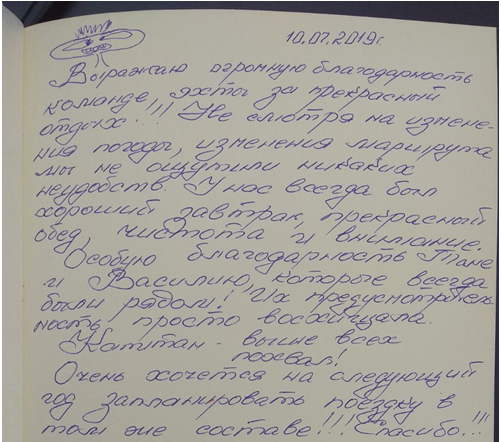 10.07.2019г.
Выражаю огромную благодарность
команде яхты за прекрасный
отдых!!! Не смотря на измене-
ния погоды, изменения маршрута
мы не ощутили никаких
неудобств. У нас всегда был
хороший завтрак, прекрасный
обед, чистота и внимание.
Особую благодарность Тане
и Василию, которые всегда
были рядом! Их предусмотритель-
ность просто восхищала.
Капитан - выше всех
похвал!
Очень хочется на следующий
год запланировать поездку в
том же составе!!! Спасибо!!!